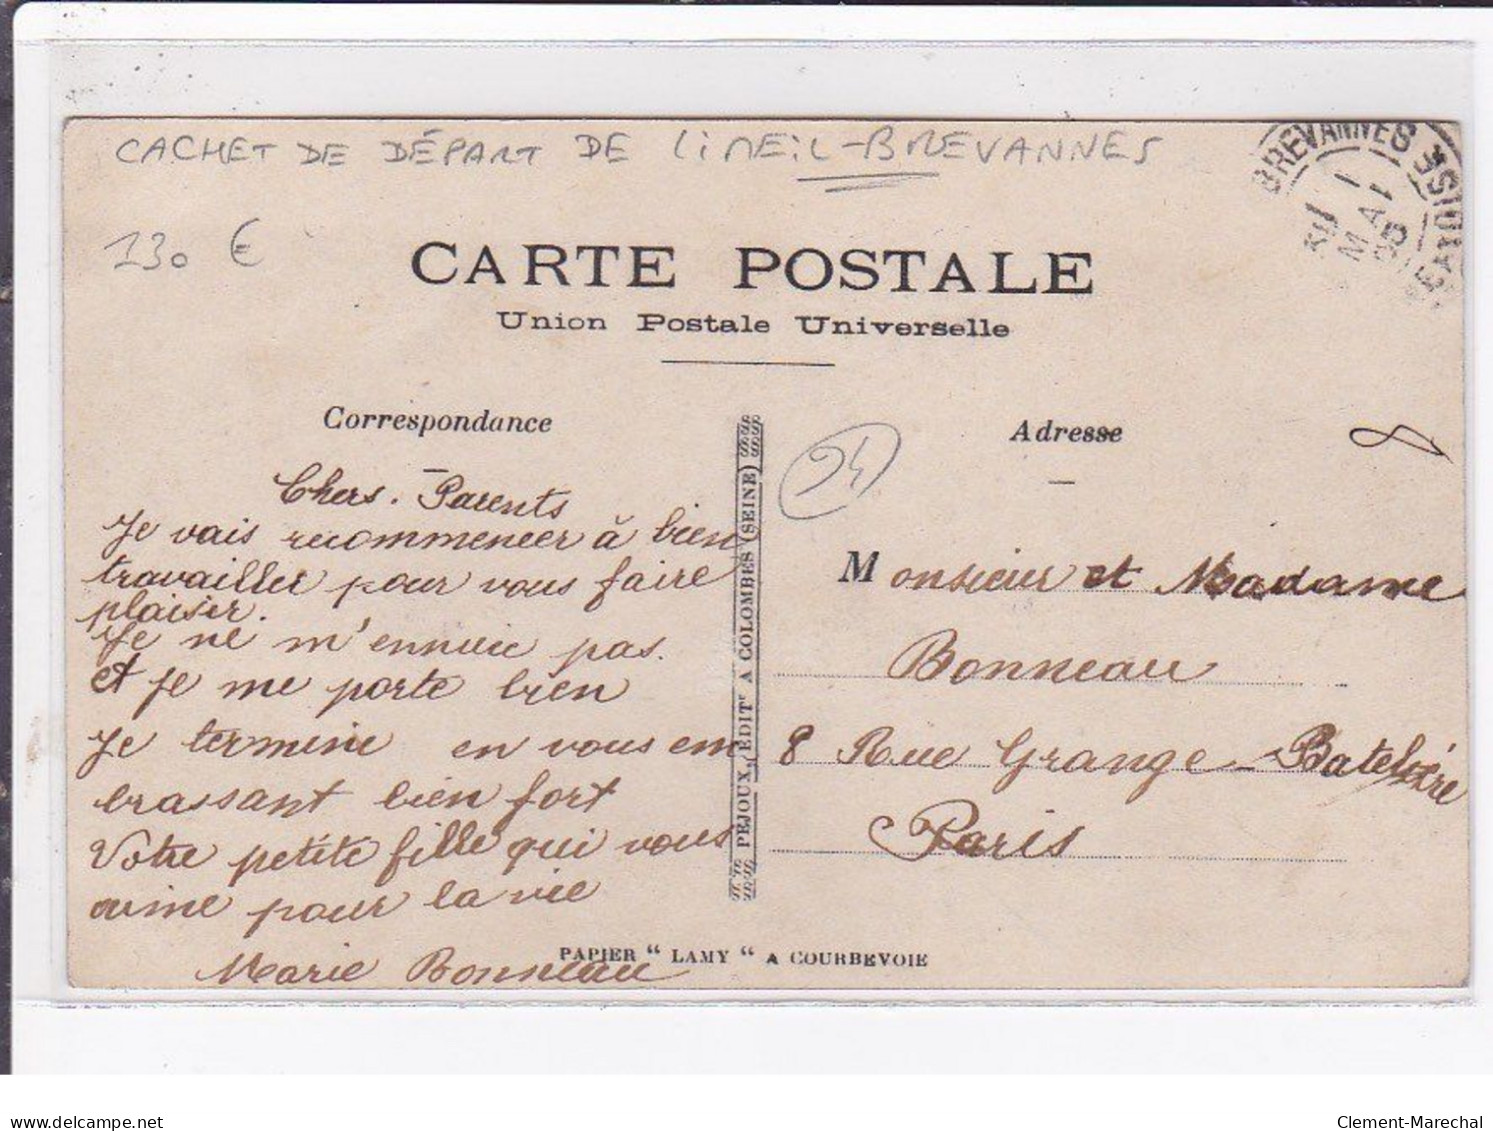 CACHET DE DÉPART DE LIMEIL-BREVANNES
130 €
BREVANNES
1
MAI
CARTE POSTALE
Union Postale Universelle
Correspondance
Chers. Parents
Je vais recommencer à bien
travailler pour vous faire
plaisir.
Je ne m'ennuie pas.
et je me porte bien
Je termine en vous em
brassant bien fort
Votre petite fille qui vous
aime pour la vie
Marie Bonneau
PEJOUX, EDITr A COLOMBES (SEINE)
94
Adresse
8
Monsieur et Madame
Bonneau
8 Rue Grange-Batelière
Paris
PAPIER “ LAMY “ A COURBEVOIE
www.delcampe.net
Clement-Marechal